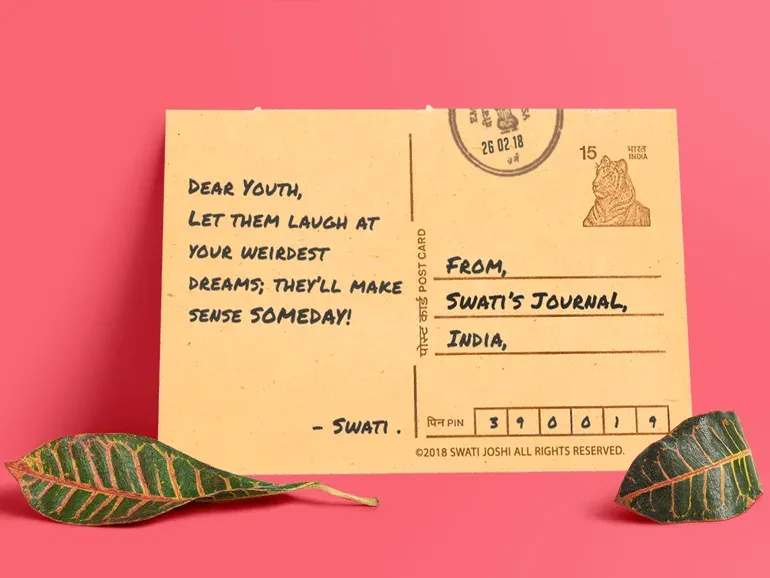 DEAR YOUTH,
LET THEM LAUGH AT
YOUR WEIRDEST
DREAMS; THEY'LL MAKE
SENSE SOMEDAY!
- SWATI .
पोस्ट कार्ड POST CARD
26 02 18
15
भारत
INDIA
FROM,
SWATI'S JOURNAL,
INDIA,
पिन PIN 3 9 0 0 1 9
©2018 SWATI JOSHI ALL RIGHTS RESERVED.